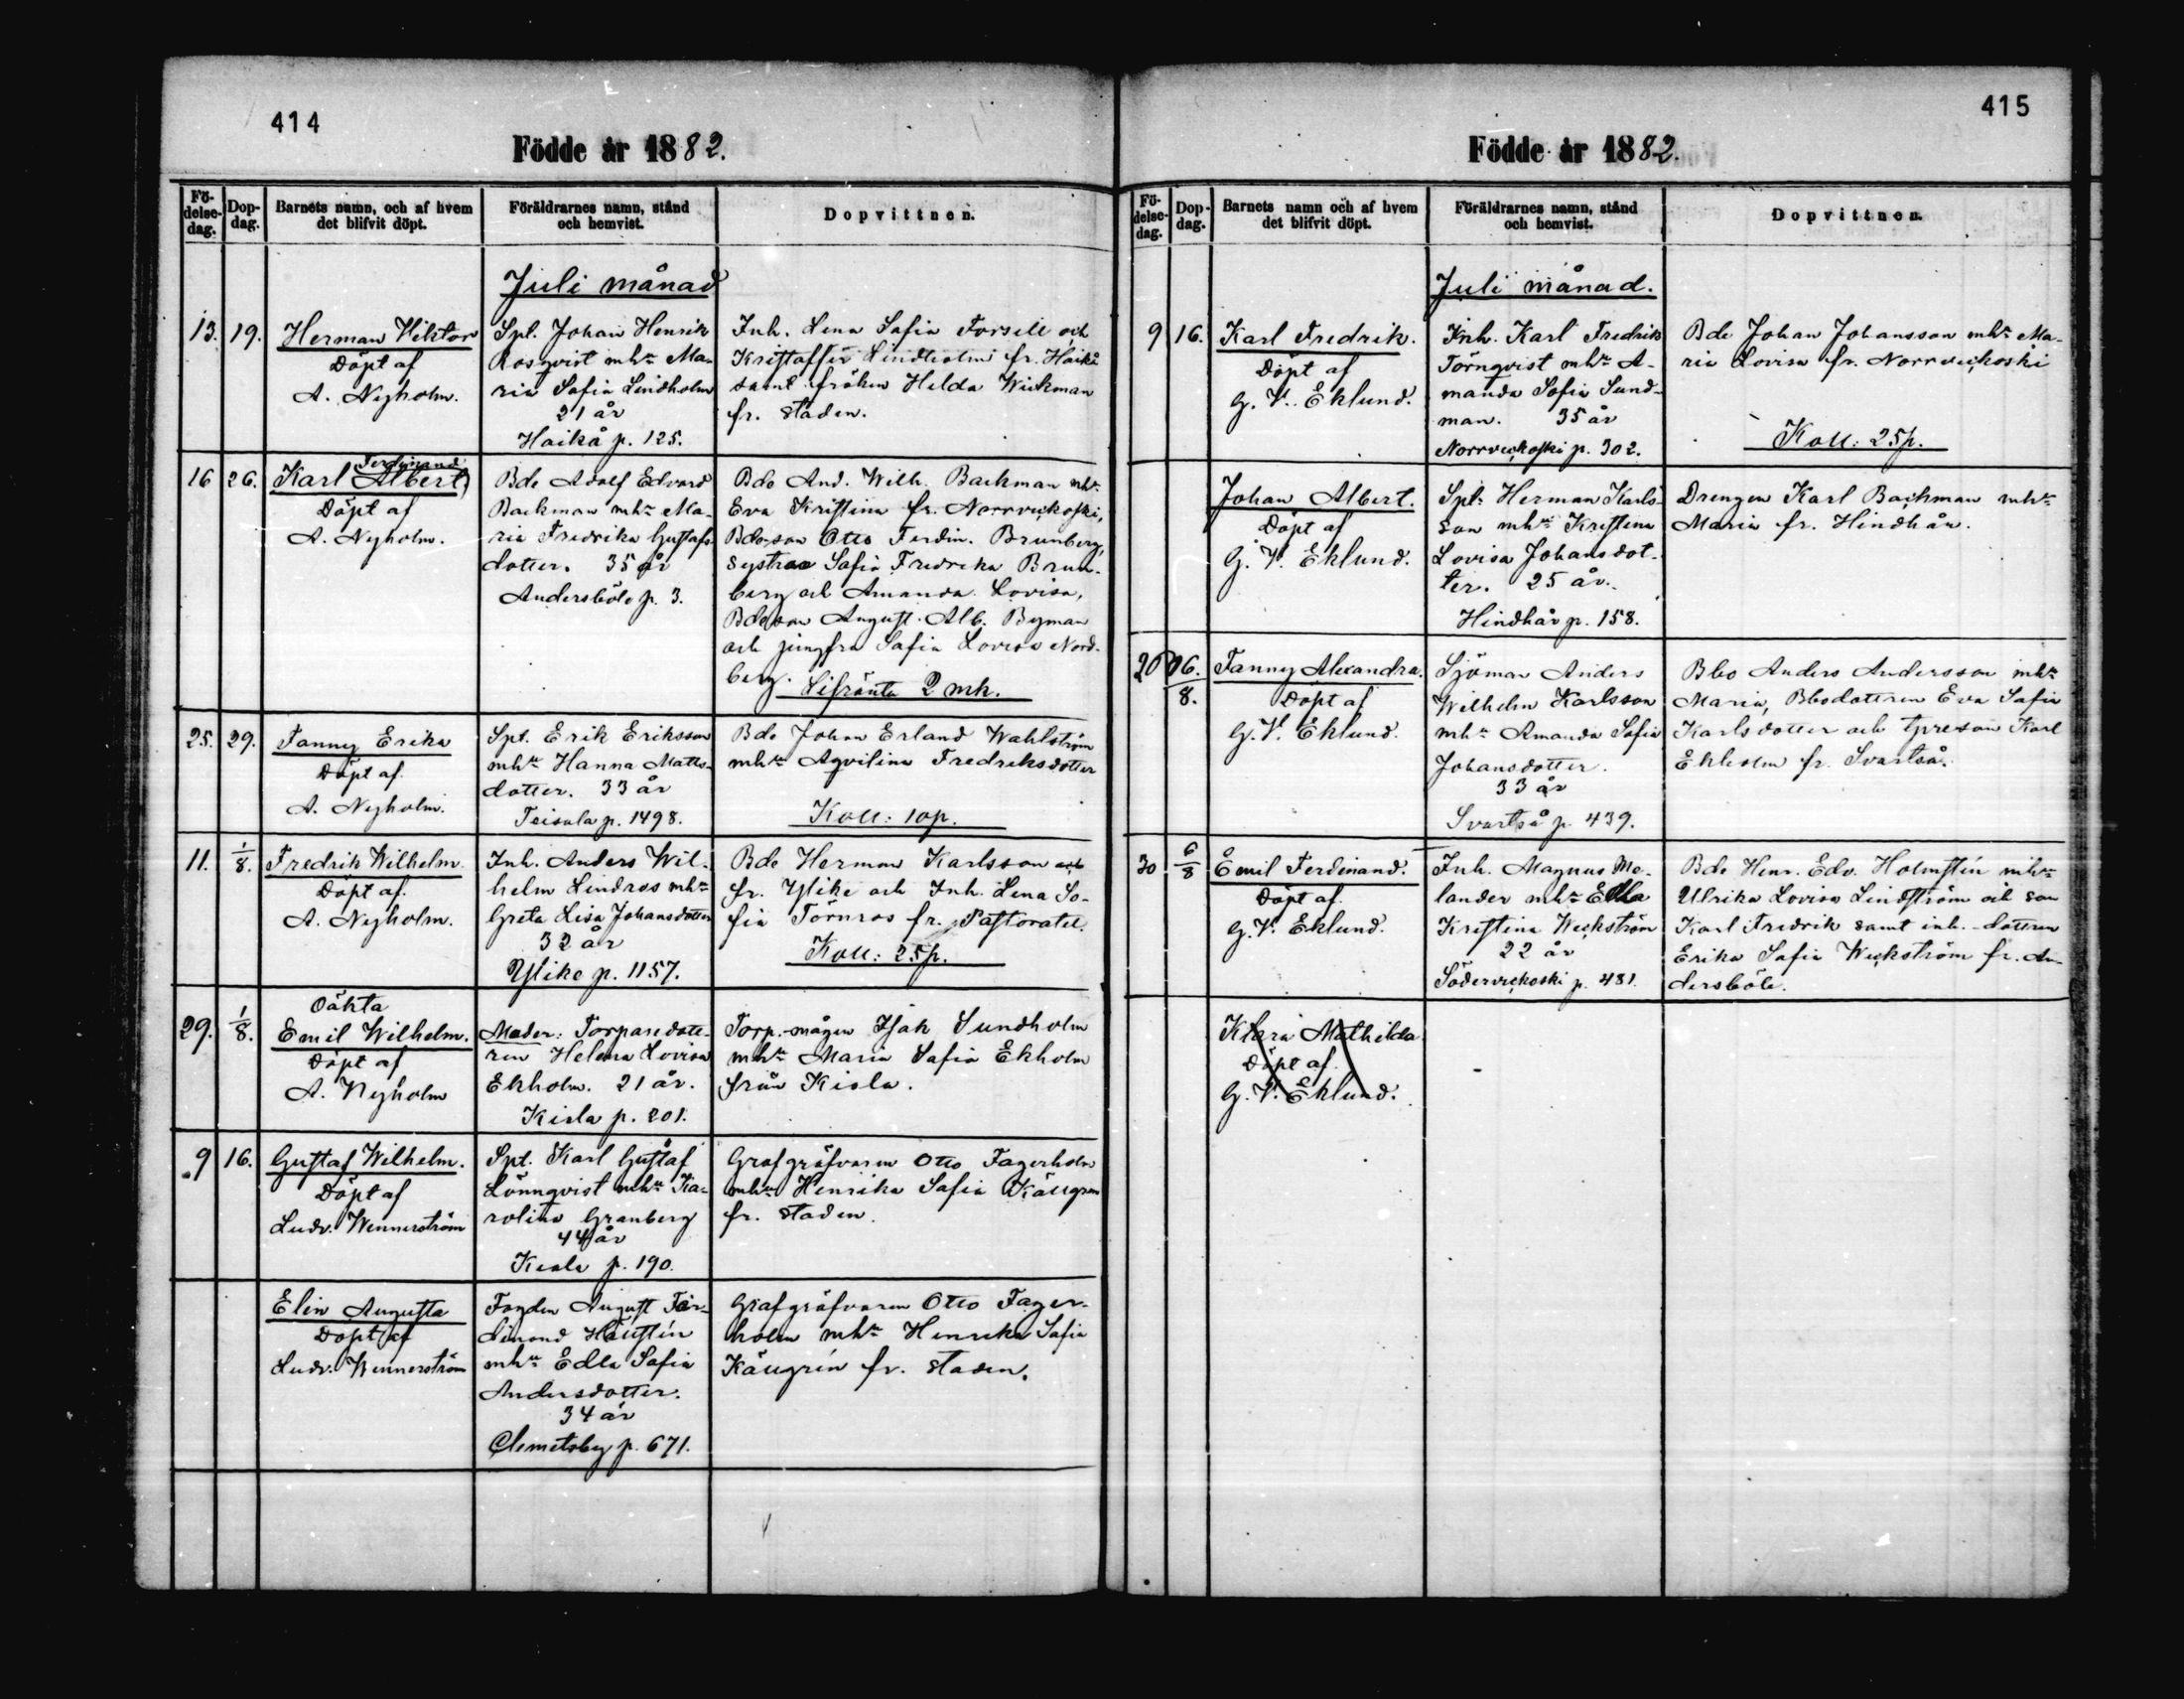 414
Födde år 1882.
Fö-
delse-
dag.
Dop-
dag.
Barnets namn, och af hvem
det blifvit döpt.
Föräldrarnes namn, stånd
och hemvist.
Dopvittnen.
Juli månad
13. 19.
Herman Viktor
Döpt af
A. Nyholm.
Spl. Johan Henrik
Rosqvist mhu Ma-
ria Sofia Lindholm
21 år
Haikå p. 125.
Inh. Lena Sofia Forsell och
Lindholm fr. Haikå
samt fröken Hilda Wickman
fr. staden.
16 26.
Ferdinand
Karl Albert
Döpt af
A. Nyholm.
Bde Adolf Edvard
Backman mhu Ma-
ria Fredrika Gustafs-
dotter. 35 år
Andersböle p. 3.
Bde And. Wilh. Backman mhu
Eva Kristina fr. Norrveckoski,
Bde-son Otto Ferdin. Brunberg,
systrar Sofia Fredrika Brun-
berg och Amanda Lovisa,
Bdeson August Alb. Byman
och jungfru Sofia Lovisa Nord-
berg. Lifränta 2 mk.
25. 29.
Fanny Erika
Döpt af
A. Nyholm.
Spt. Erik Eriksson
mhu Hanna Matts-
dotter. 33 år
Teisala p. 1498.
Bde Johan Erland Wahlström
mhu Aqvilina Fredriksdotter
Koll: 10p.
11. 1/8.
Fredrik Wilhelm.
Döpt af
A. Nyholm.
Inh. Anders Wil-
helm Lindros mhu
Greta Lisa Johansdotter
32 år
Ylike p. 1157.
Bde Herman Karlsson och
fr. Ylike och Inh. Lena So-
fia Törnros fr. Pastoratet.
Koll: 25p.
29. 1/8.
Oäkta
Emil Wilhelm.
Döpt af
A. Nyholm
Moder: Torparedott-
ren Helena Lovisa
Ekholm. 21 år.
Kiala p. 201.
Torp.-mågen Isak Sundholm
mhu Maria Sofia Ekholm
från Kiala.
9 16.
Gustaf Wilhelm.
Döpt af
Ludv. Wennerström
Spt. Karl Gustaf
Lönnqvist mhu Ka-
rolina Granberg
44 år
Kiala p. 190.
Grafgräfvaren Otto Fagerholm
mhu Henrika Sofia Källgren
fr. staden.
Elin Augusta
Döpt af
Ludv. Wennerström
Fogden August Fer-
dinand Hällstén
mhu Edla Sofia
Andersdotter.
34 år
Clemetsby p. 671.
Grafgräfvaren Otto Fager-
holm mhu Henrika Sofia
Källgrén fr. staden.
415
Födde år 1882.
Fö-
delse-
dag.
Dop-
dag.
Barnets namn och af hvem
det blifvit döpt.
Föräldrarnes namn, stånd
och hemvist.
Dopvittnen.
Juli månad.
9 16.
Karl Fredrik.
Döpt af
G. V. Eklund.
Inh. Karl Fredrik
Törnqvist mhu A-
manda Sofia Sund-
man. 35 år
Norrveckoski p. 302.
Bde Johan Johansson mhu Ma-
ria Lovisa fr. Norrveckoski
Koll: 25p.
Johan Albert.
Döpt af
G. V. Eklund.
Spt. Herman Karls-
son mhu Kristina
Lovisa Johansdot-
ter. 25 år.
Hindhår p. 158.
Drengen Karl Backman mhu
Maria fr. Hindhår.
6/8.
Fanny Alexandra.
Döpt af
G. V. Eklund.
Sjöman Anders
Wilhelm Karlsson
mhu Amanda Sofia
Johansdotter.
33 år
Svartså p. 439.
Bbo Anders Andersson mhu
Maria, Bbodottren Eva Sofia
Karlsdotter och Karl
Ekholm fr. Svartså.
30 6/8
Emil Ferdinand.
Döpt af
G. V. Eklund.
Inh. Magnus Me-
lander mhu Edla
Kristina Weckström
22 år
Söderveckoski p. 481.
Bde Henr. Edv. Holmstén mhu
Ulrika Lovisa Lindström och son
Karl Fredrik samt inh.-dottren
Erika Sofia Weckström fr. An-
dersböle.
Klara Mathilda
Döpt af
G. V. Eklund.